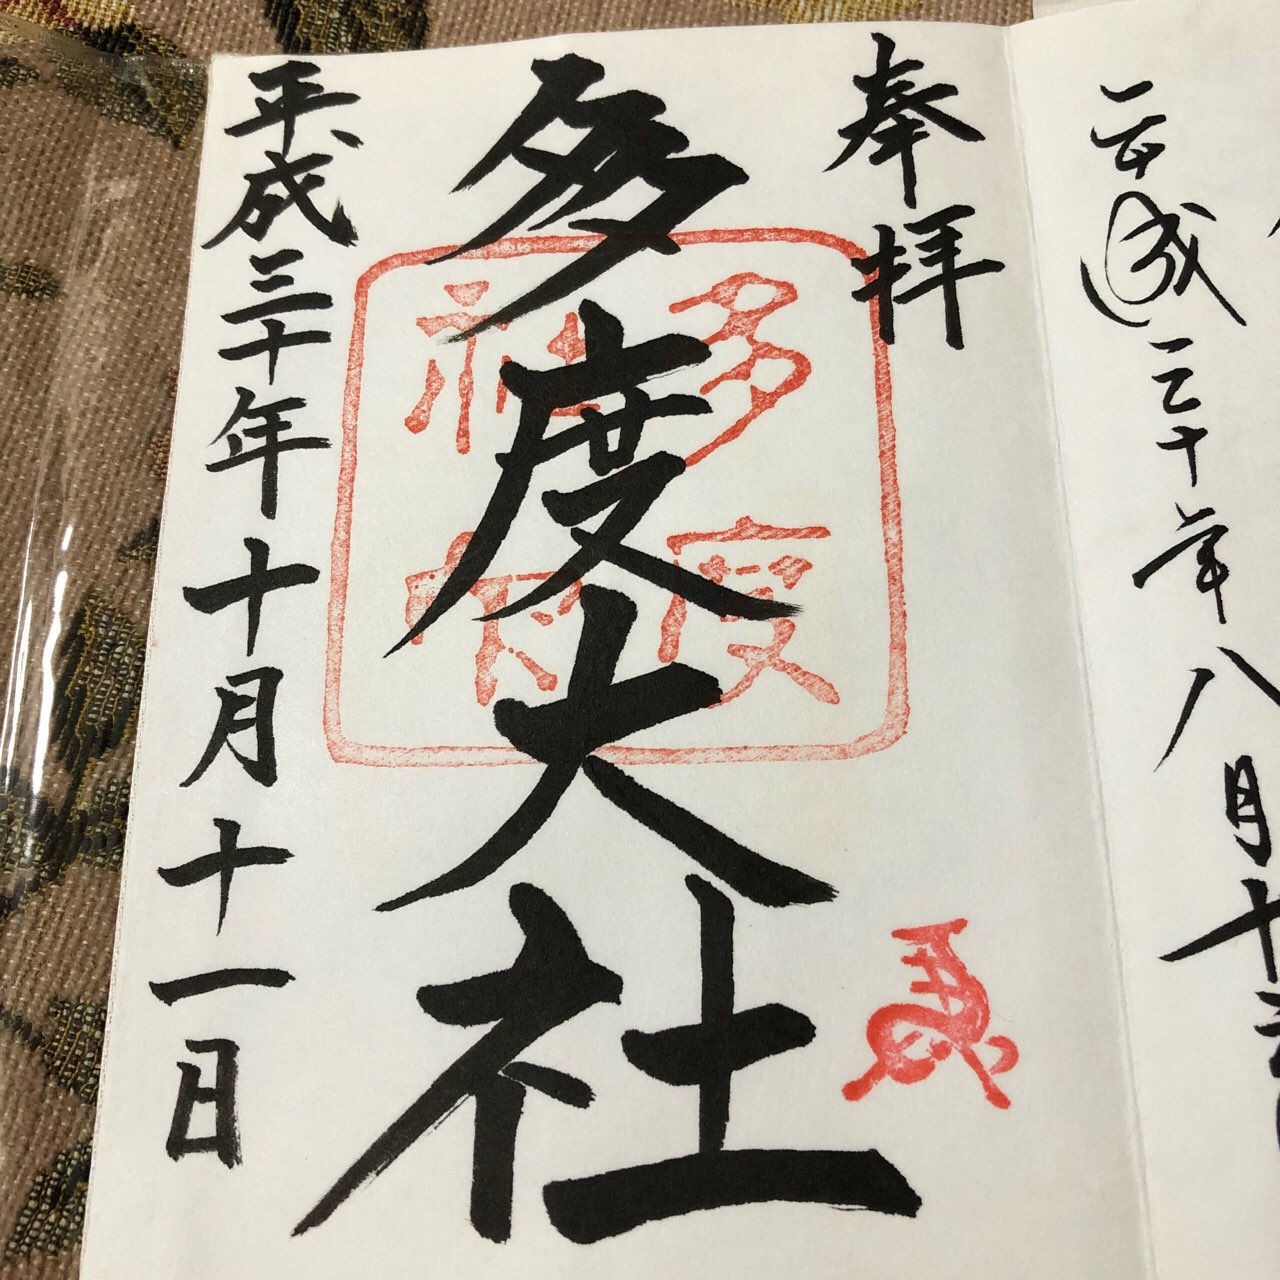 平成三十年八月十
奉拝
多度大社
多度
社
平成三十年十月十一日